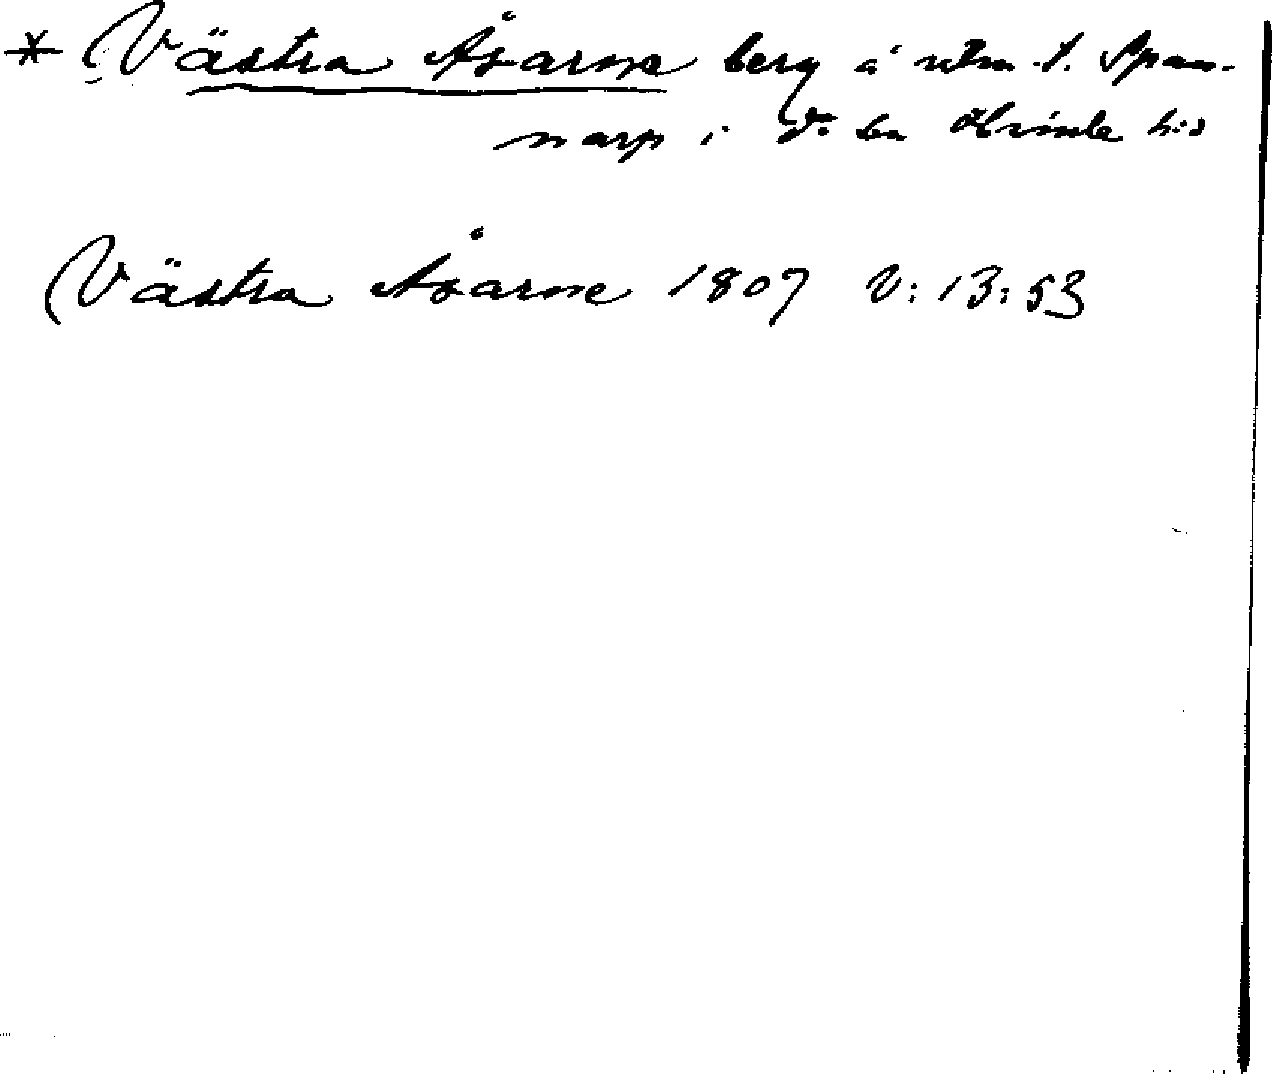 * Västra Åsarne berg å utm. t. Span-
narp i Sn Himle hd
Västra Åsarne 1807 V: 13: 53